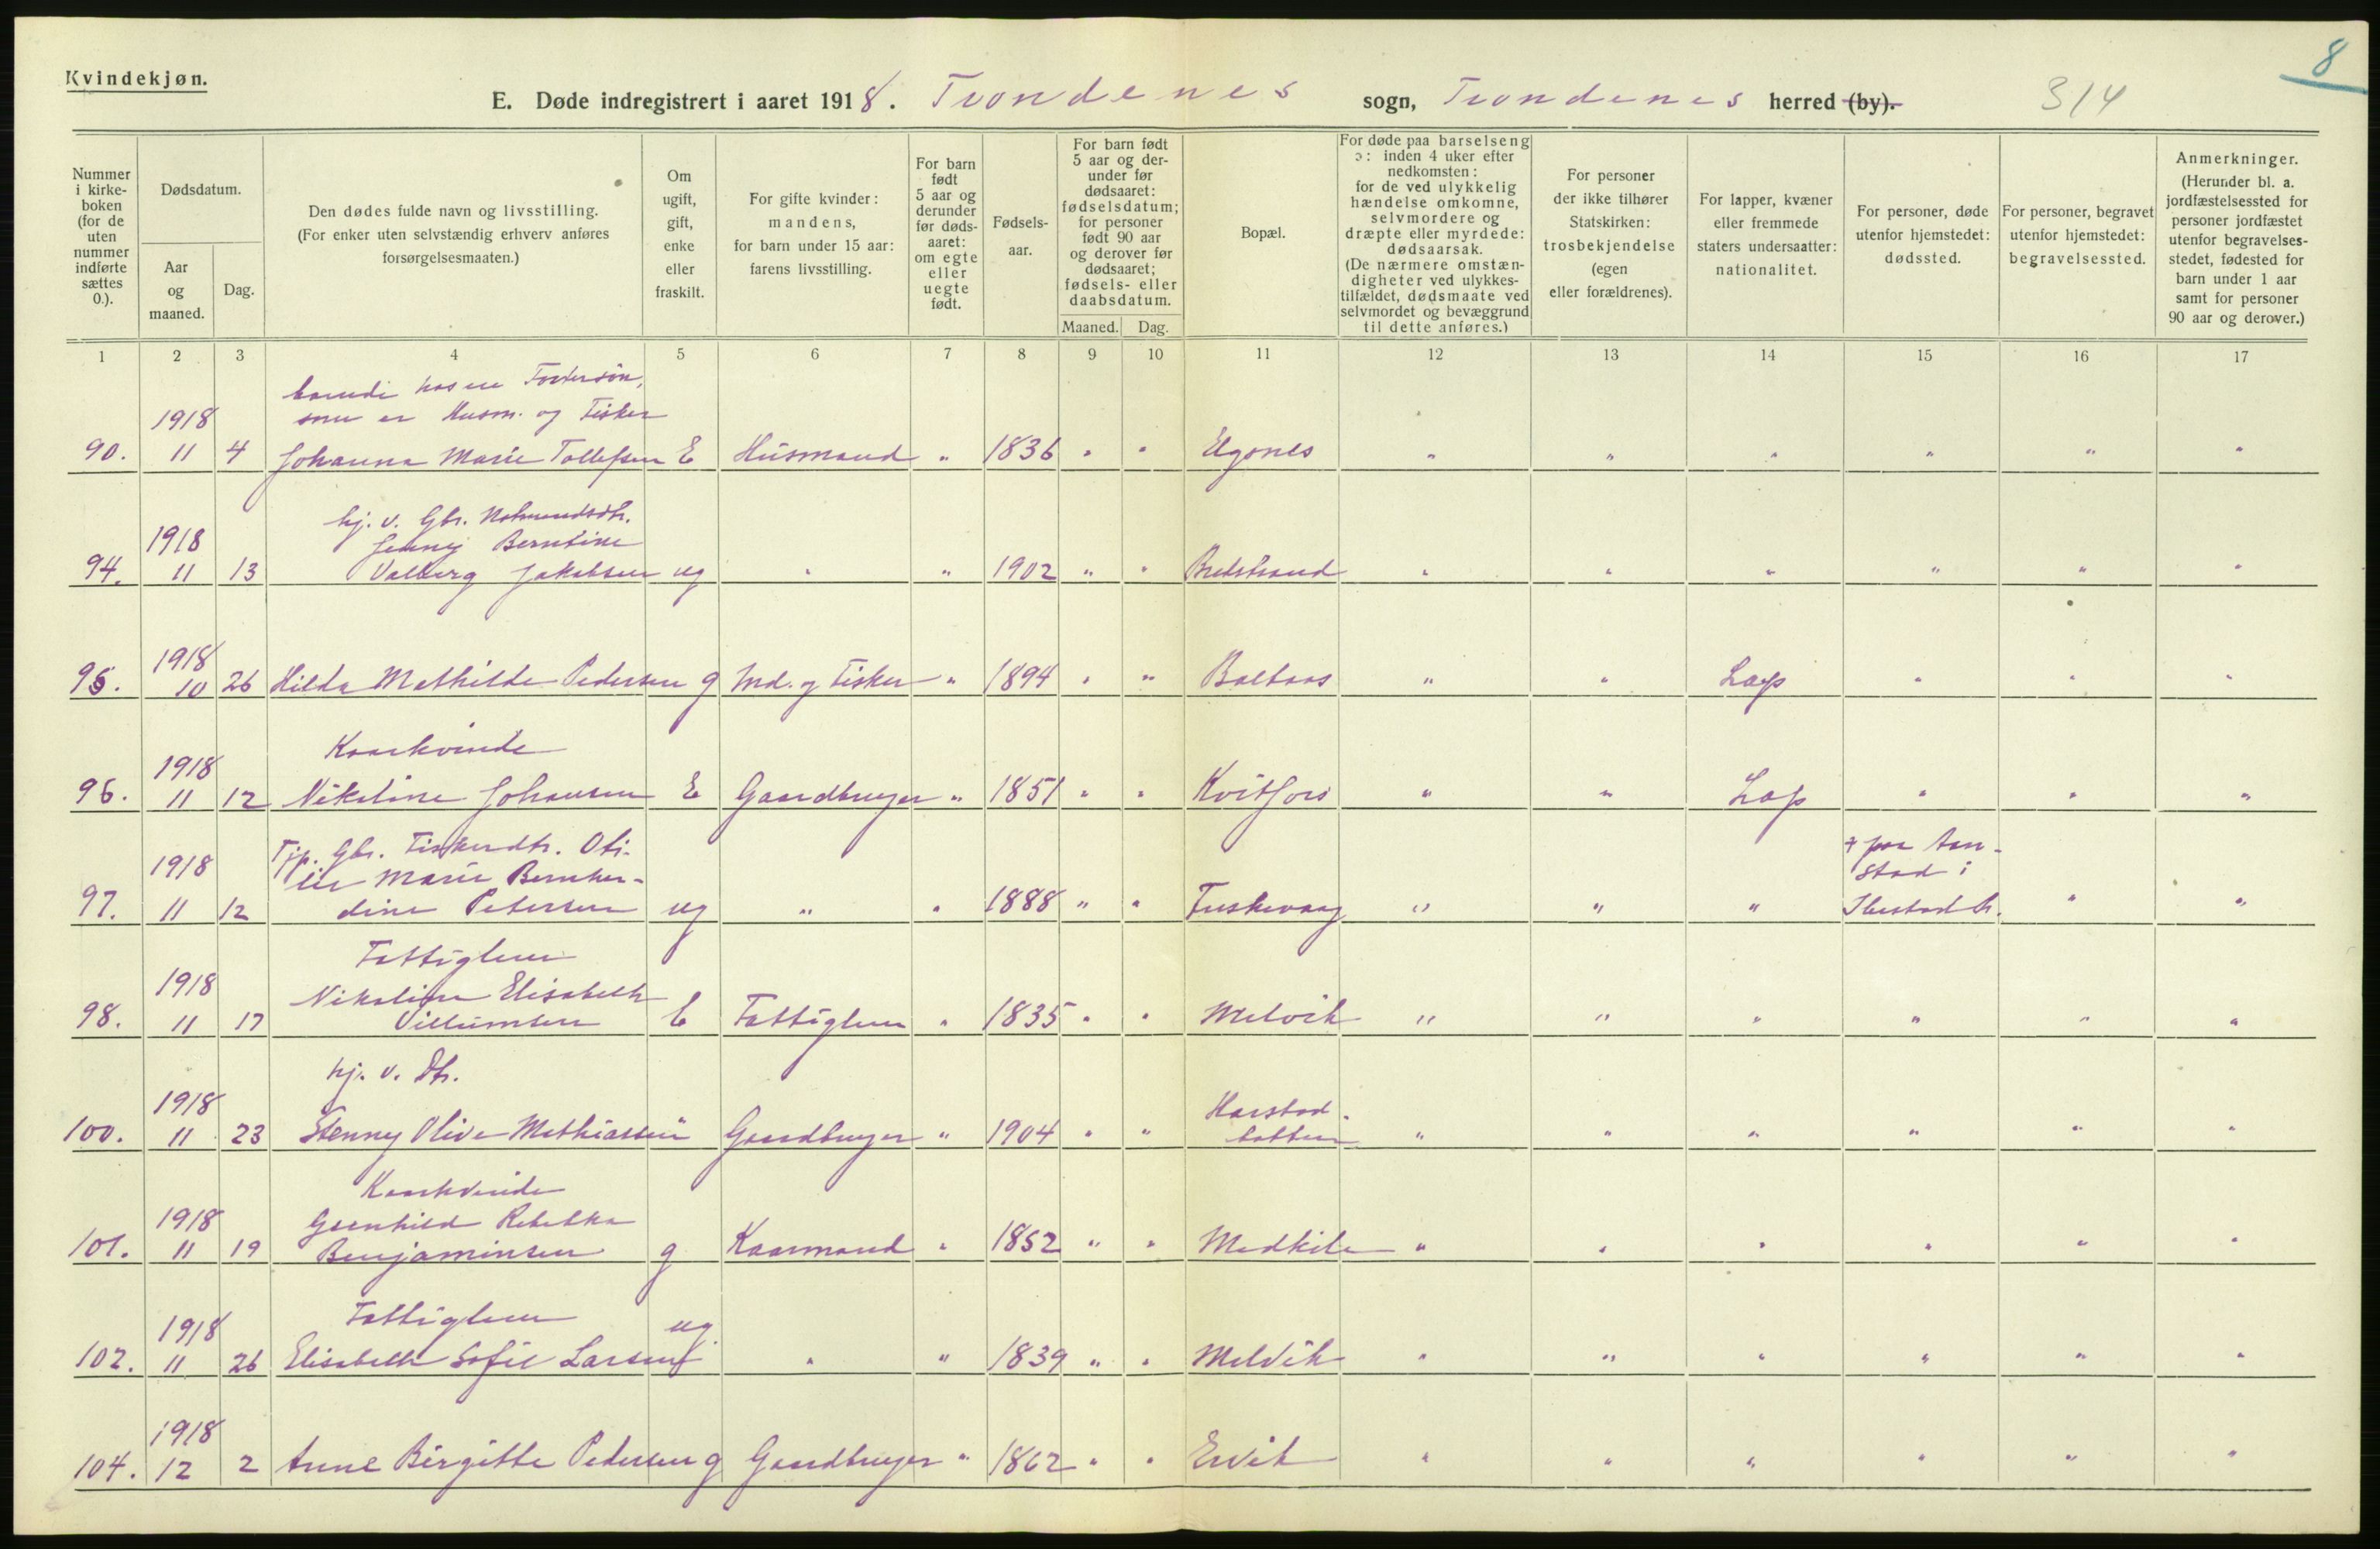 8
Kvindekjøn.
E. Døde indregistrert i aaret 1918. Trondenes sogn, Trondenes herred (by). 314
Nummer i kirkeboken (for de uten nummer indførte sættes 0.).
Dødsdatum.
Aar og maaned.
Dag.
Den dødes fulde navn og livsstilling.
(For enker uten selvstændig erhverv anføres forsørgelsesmaaten.)
Om ugift, gift, enke eller fraskilt.
For gifte kvinder: mandens, for barn under 15 aar: farens livsstilling.
For barn født 5 aar og derunder før dødsaaret: om egte eller uegte født.
Fødselsaar.
For barn født 5 aar og derunder før dødsaaret: fødselsdatum; for personer født 90 aar og derover før dødsaaret; fødsels- eller daabsdatum.
Maaned. Dag.
Bopæl.
For døde paa barselseng ɔ: inden 4 uker efter nedkomsten: for de ved ulykkelig hændelse omkomne, selvmordere og dræpte eller myrdede: dødsaarsak. (De nærmere omstændigheter ved ulykkestilfældet, dødsmaate ved selvmordet og bevæggrund til dette anføres.)
For personer der ikke tilhører Statskirken: trosbekjendelse (egen eller forældrenes).
For lapper, kvæner eller fremmede staters undersaatter: nationalitet.
For personer, døde utenfor hjemstedet: dødssted.
For personer, begravet utenfor hjemstedet: begravelsessted.
Anmerkninger. (Herunder bl. a. jordfæstelsessted for personer jordfæstet utenfor begravelsesstedet, fødested for barn under 1 aar samt for personer 90 aar og derover.)
1 2 3 4 5 6 7 8 9 10 11 12 13 14 15 16 17
som er Husm. og Fisker
1918
90. 11 4 Johanna Marie Tollefsen E Husmand " 1836 " " Elgsnes " " " " " "
hj. v. Gbr.
1918 Jenny Berntine
94. 11 13 Valborg Jakobsen ug " " 1902 " " " " " " " "
1918
95. 10 26 Hilda Mathilde Pedersen g Ind. og Fisker " 1894 " " " " Lap " " "
Kaarkvinde
1918
96. 11 12 Nikoline Johansen E Gaardbruger " 1851 " " Kvitfors " " Lap " " "
Gbr. Fiskerdtr. Oti-
1918 lie Marie Bernhar-
97. 11 12 dine Petersen ug " " 1888 " " Fuskevaag " " " + paa Aan-
stad i
Ibestad h. " "
Fattiglem
1918 Nikoline Elisabeth
98. 11 17 Villumsen E Fattiglem " 1835 " " Melvik " " " " " "
hj. v. Dtr.
1918 Harstad-
100. 11 23 Stenny Olive Mathiassen " Gaardbruger " 1904 " " botten " " " " " "
Kaarkvinde
1918 Gunhild Rebekka
101. 11 19 Benjaminsen g Kaarmand " 1852 " " Medkila " " " " " "
Fattiglem
1918
102. 11 26 Elisabeth Sofie Larsen ug " " 1839 " " Melvik " " " " " "
1918
104. 12 2 Anne Birgitte Pedersen g Gaardbruger " 1862 " " Ervik " " " " " "